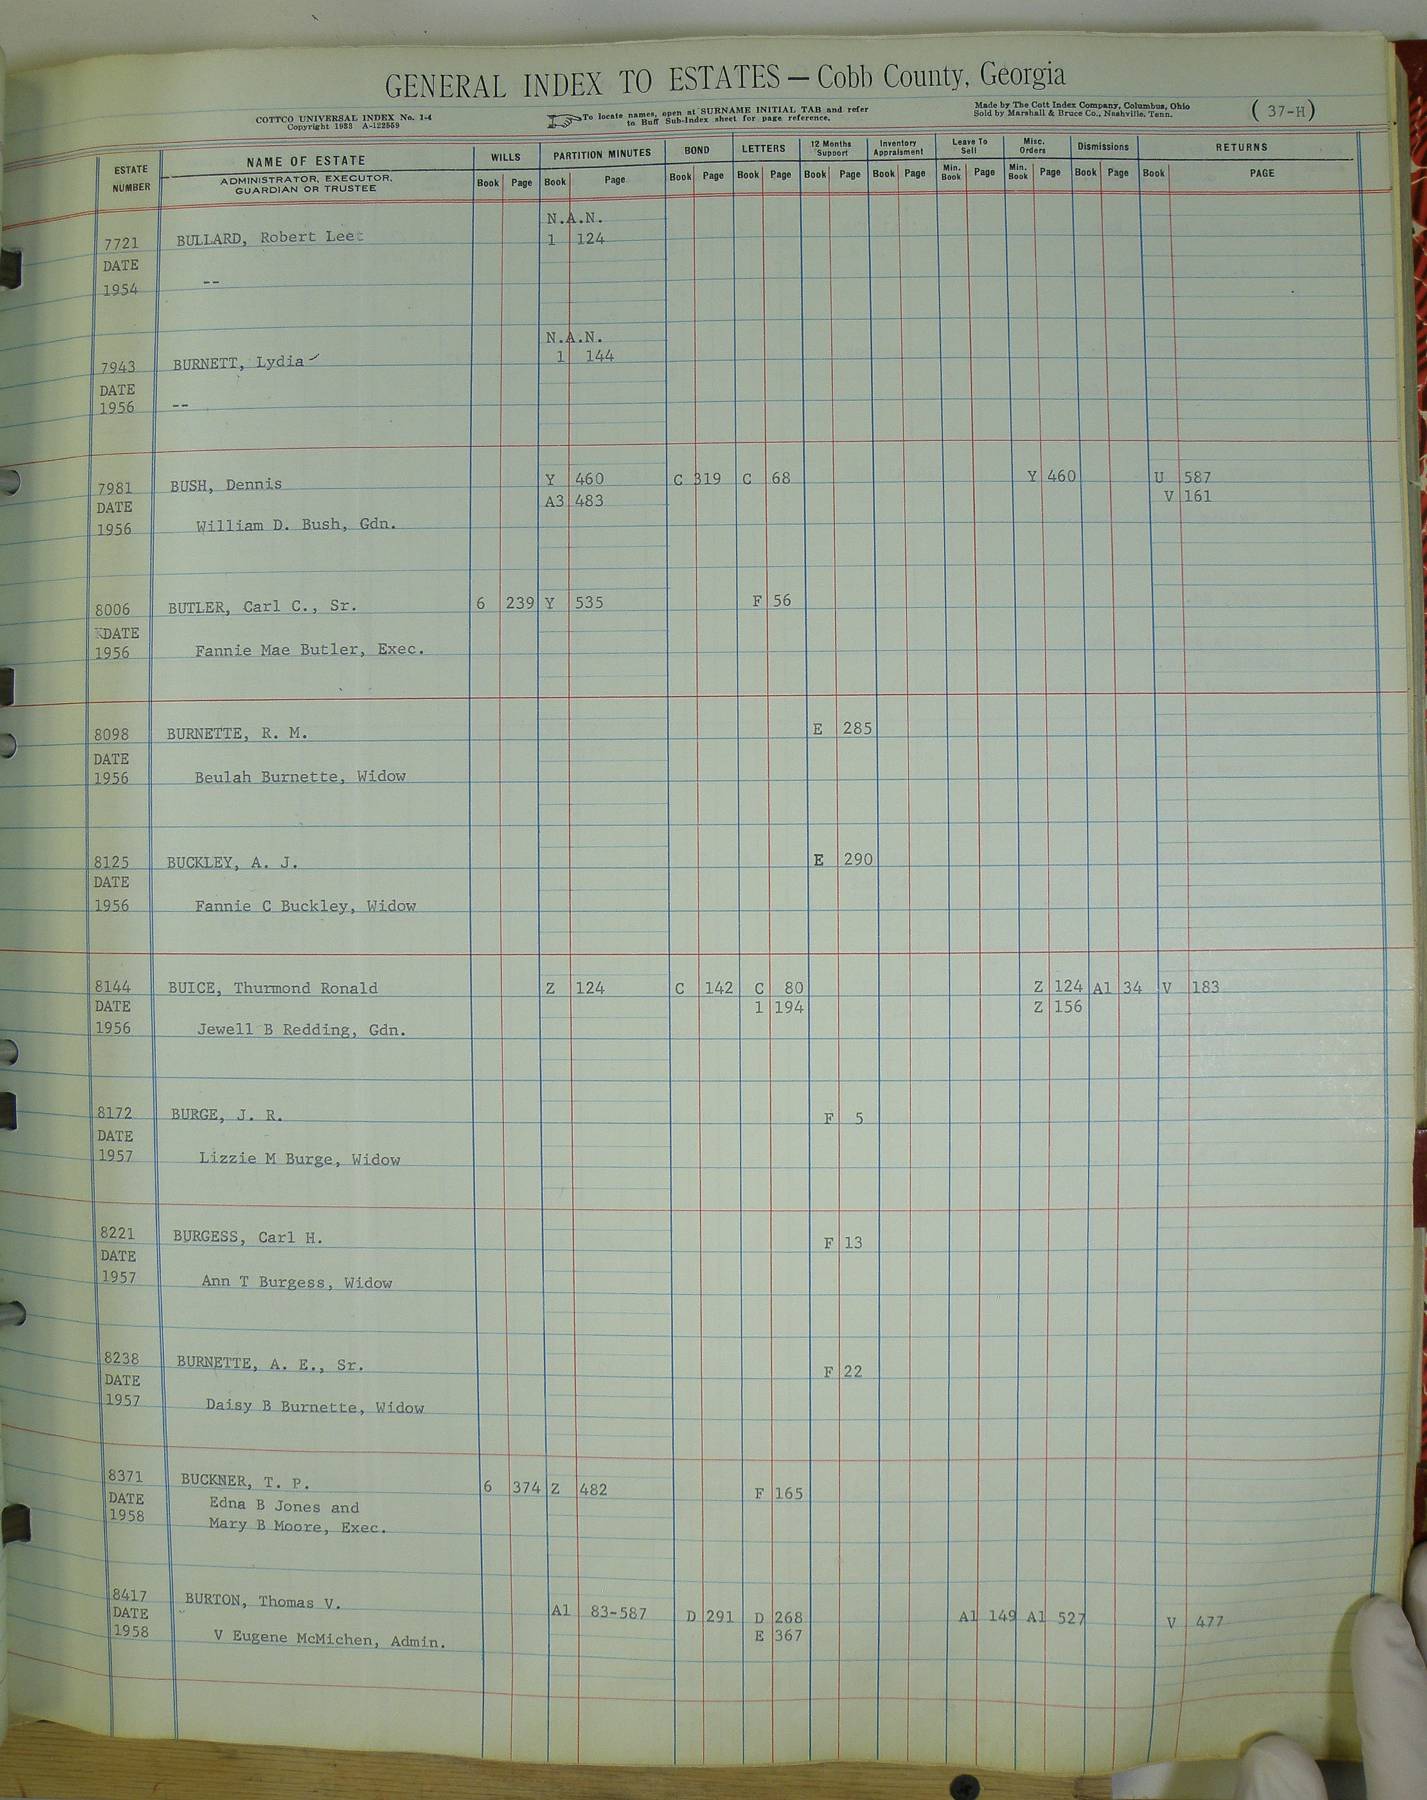 GENERAL INDEX TO ESTATES — Cobb County, Georgia
COTTCO UNIVERSAL INDEX No. 1-4
Copyright 1933 A-122559
To locate names, open at SURNAME INITIAL TAB and refer
to Buff Sub-Index sheet for page reference.
Made by The Cott Index Company, Columbus, Ohio
Sold by Marshall & Bruce Co., Nashville, Tenn.
( 37-H )
ESTATE NUMBER NAME OF ESTATE WILLS PARTITION MINUTES BOND LETTERS 12 Months Support Inventory Appraisment Leave To Sell Misc. Orders Dismissions RETURNS
ADMINISTRATOR, EXECUTOR, GUARDIAN OR TRUSTEE Book Page Book Page Book Page Book Page Book Page Book Page Min. Book Page Min. Book Page Book Page Book PAGE
N.A.N.
7721 BULLARD, Robert Lee 1 124
DATE
1954 --
N.A.N.
7943 BURNETT, Lydia 1 144
DATE
1956 --
7981 BUSH, Dennis Y 460 C 319 C 68 Y 460 U 587
DATE A3 483 V 161
1956 William D. Bush, Gdn.
8006 BUTLER, Carl C., Sr. 6 239 Y 535 F 56
DATE
1956 Fannie Mae Butler, Exec.
8098 BURNETTE, R. M. E 285
DATE
1956 Beulah Burnette, Widow
8125 BUCKLEY, A. J. E 290
DATE
1956 Fannie C Buckley, Widow
8144 BUICE, Thurmond Ronald Z 124 C 142 C 80 Z 124 A1 34 V 183
DATE 1 194 Z 156
1956 Jewell B Redding, Gdn.
8172 BURGE, J. R. F 5
DATE
1957 Lizzie M Burge, Widow
8221 BURGESS, Carl H. F 13
DATE
1957 Ann T Burgess, Widow
8238 BURNETTE, A. E., Sr. F 22
DATE
1957 Daisy B Burnette, Widow
8371 BUCKNER, T. P. 6 374 Z 482 F 165
DATE Edna B Jones and
1958 Mary B Moore, Exec.
8417 BURTON, Thomas V. A1 83-587 D 291 D 268 A1 149 A1 527 V 477
DATE E 367
1958 V Eugene McMichen, Admin.